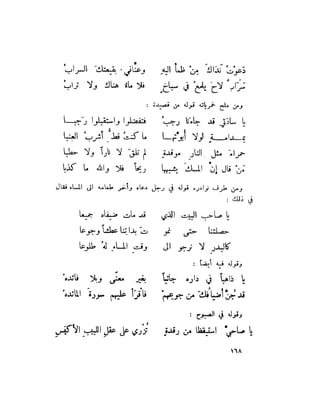 دعوتُ نداكَ مِنْ ظمأ اليهِ وعنّاني بقيعتكَ السرابُ
سَرَابٌ لاحَ يلمعُ في سباخٍ فلا ماءٌ هناك ولا ترابُ
ومن ملح خمرياته قوله من قصيدة :
يا سادتي قد جاءنا رجبُ فتفضلوا واستقبلوا رجبا
بمدامة لولا أبوّتها ما كنتُ قطُّ أشربُ العنبا
حمراءَ مثل النار موقدةٍ لم تلقَ لا ناراً ولا حطبا
مَنْ قال إنَّ المسكَ يشبهها ريحاً فلا والله ما كذبا
ومن طرف نوادره قوله في رجل دعاه وأخر طعامه الى المساء فقال
في ذلك :
يا صاحب البيت الذي قد مات ضيفاه جميعا
حصلتنا حتى نمو تَ بدائنا عطشاً وجوعا
كالبدرِ لا نرجو الى وقتِ المساءِ لهُ طلوعا
وقوله فيه أيضاً :
يا ذاهباً في داره جائياً بغير معنّى وبلا فائدهْ
قد جُنَّ أضيافُكَ من جوعهمْ فاقرأ عليهم سورةَ المائدهْ
وقوله في الصبوح :
يا صاحبيَّ استيقظا من رقدةٍ تُزْري على عقلِ اللبيبِ الأكْيَسِ
١٦٨